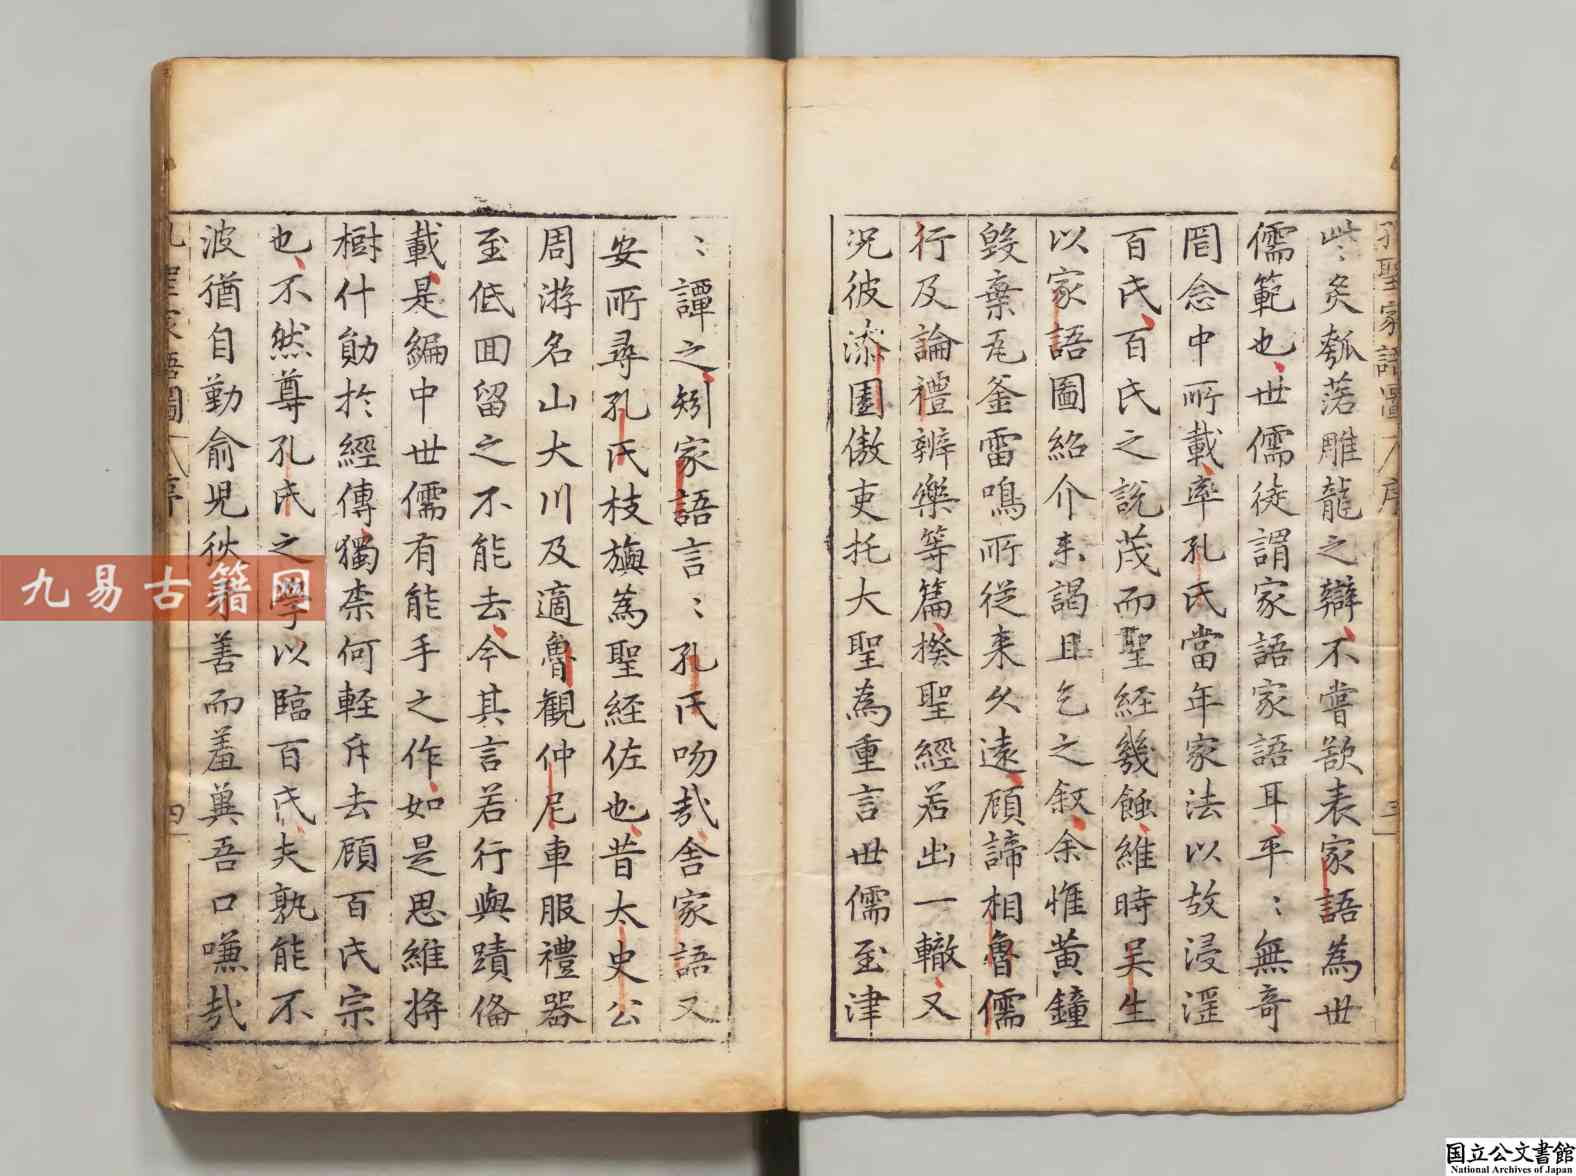 孔聖家語圖 序 三
炙瓠落雕龍之辯不嘗歆表家語為世
儒範也世儒徒謂家語家語耳乎〻無奇
罔念中所載率孔氏當年家法以故浸滛
百氏百氏之說茂而聖經幾蝕維時吴生
以家語圖紹介來謁且乞之叙余惟黄鐘
毀棄瓦釜雷鳴所從来久遠顧諦相魯儒
行及論禮辨樂等篇揆聖經若出一轍又
況彼漆園傲吏托大聖為重言世儒至津
〻譚之矧家語言〻孔氏吻㢤舍家語又
安所尋孔氏枝旟為聖経佐也昔太史公
周游名山大川及適魯観仲尼車服禮器
至低回留之不能去今其言若行與蹟俻
載是編中世儒有能手之作如是思維將
樹什勛於經傳獨柰何輕斥去顧百氏宗
也不然尊孔氏之學以臨百氏夫孰能不
波猶自勤俞兒狄牙善而羞與吾口嗛㢤
孔聖家語圖 序 四
九易古籍网
国立公文書館
National Archives of Japan